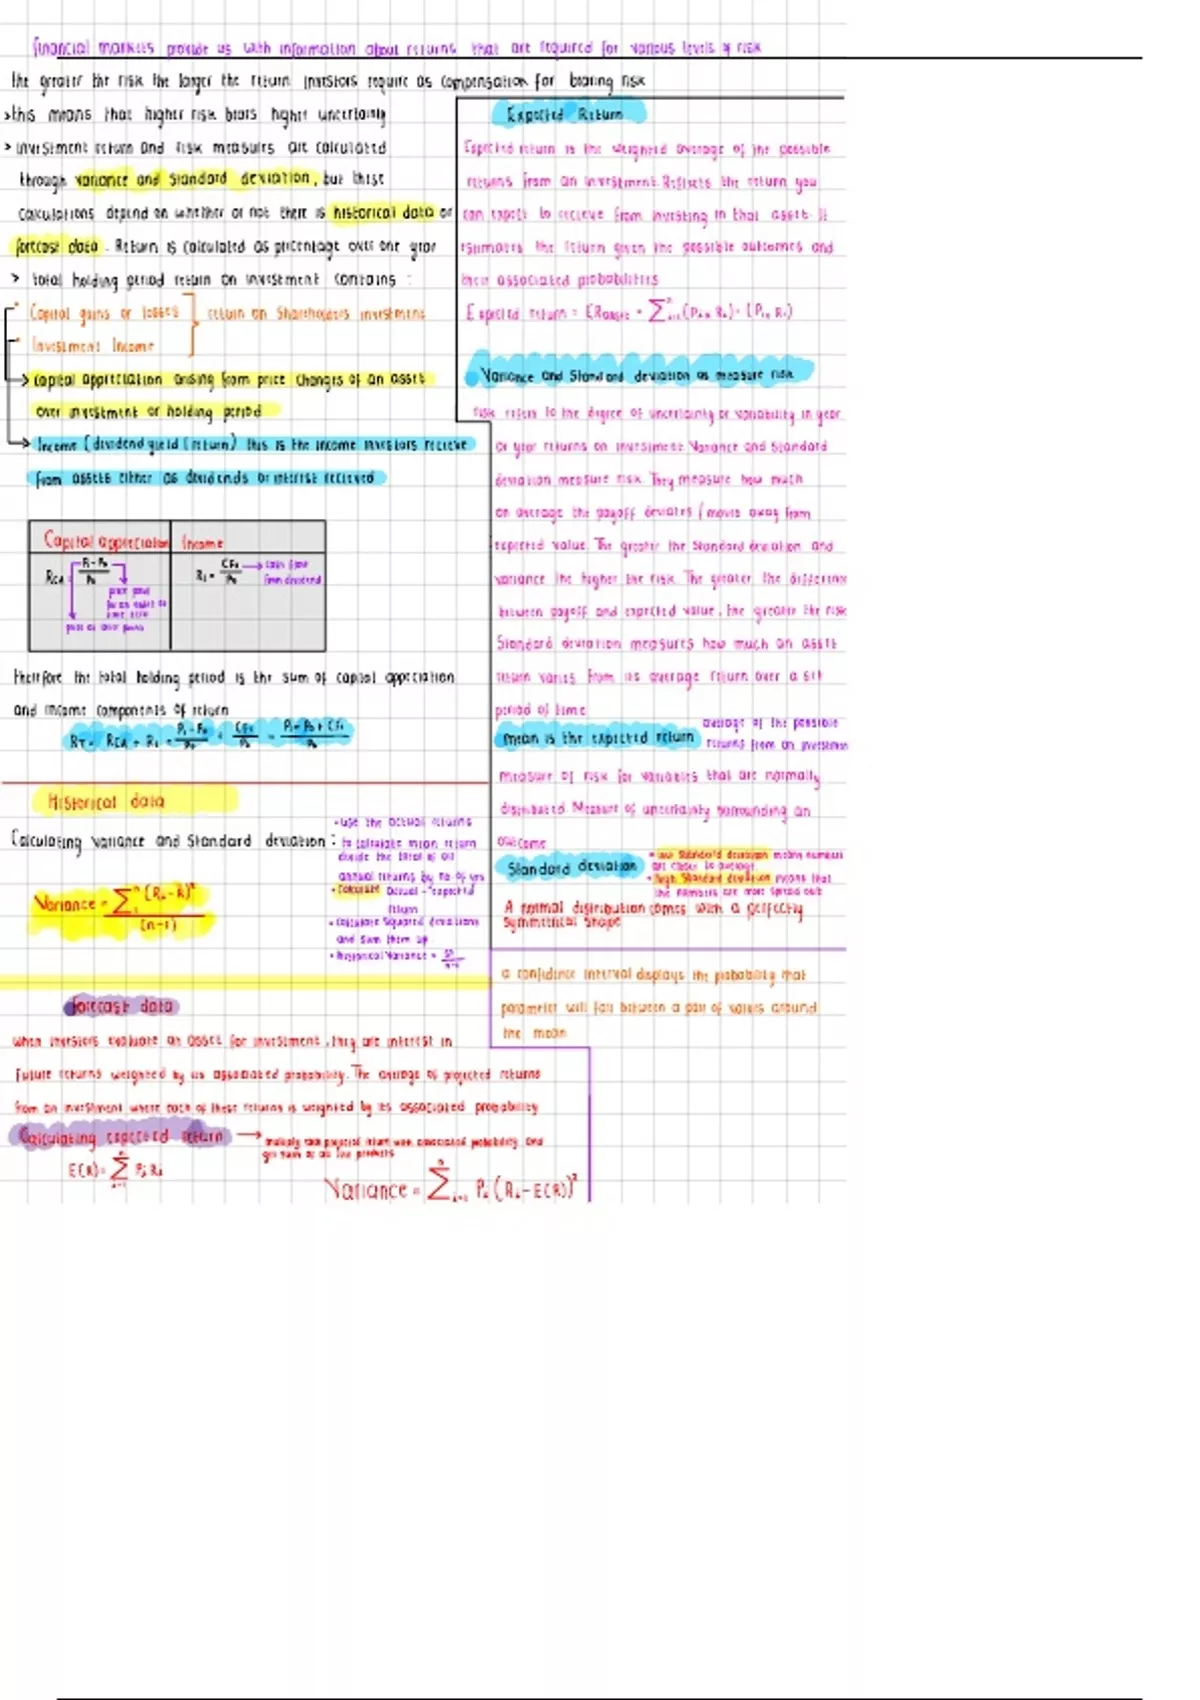 financial markets provide us with information about returns that are required for various levels of risk
the greater the risk the larger the return investors require as compensation for bearing risk
>this means that higher risk bears higher uncertainty
> investment return and risk measures are calculated
through variance and standard deviation, but these
calculations depend on whether or not there is historical data or
forecast data. Return is calculated as percentage over one year
> total holding period return on investment contains :
• Capital gains or losses
• Investment Income
} return on shareholders investment
> capital appreciation arising from price changes of an asset
over investment or holding period
> Income (dividend yield (return) this is the income investors recieve
from assets either as dividends or interest recieved
Capital appreciation
Income
Therefore the total holding period is the sum of capital appreciation
and income components of return
Historical data
Calculating variance and standard deviation :
• use the actual returns
to calculate mean return
divide the total of all
annual returns by no of yrs
• Calculate actual - expected
return
• calculate squared deviations
and sum them up
• historical variance =
forecast data
when investors evaluate an asset for investment, they are interest in
future returns weighted by its associated probability. The average of projected returns
from an investment where each of these returns is weighted by its associated probability
Calculating expected return → multiply each projected return with associated probability and
get sum of all the products
E(R) = ∑ Pi Ri
Variance = ∑ Pi (Ri - E(R))²
Expected Return
Expected return is the weighted average of the possible
returns from an investment. Reflects the return you
can expect to recieve from investing in that asset. It
estimates the return given the possible outcomes and
their associated probabilities
Variance and Standard deviation as measure risk
risk refers to the degree of uncertainty or variability in year
or year returns on investment. Variance and Standard
deviation measure risk. They measure how much
on average the payoff deviates / moves away from
expected value. The greater the standard deviation and
variance the higher the risk. The greater the difference
between payoff and expected value, the greater the risk
Standard deviation measures how much an assets
return varies from its average return over a set
period of time
mean is the expected return
average of the possible
returns from an investment
measure of risk for variables that are normally
distributed. Measure of uncertainty surrounding an
outcome
Standard deviation
• low standard deviation means numbers
are closer to average
• high standard deviation means that
the numbers are more spread out
A normal distribution comes with a perfectly
symmetrical shape
a confidence interval displays the probability that
parameter will fall between a pair of values around
the mean